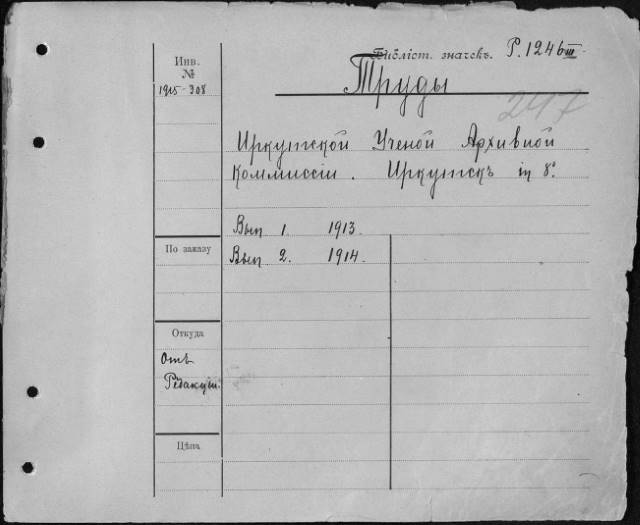 Инв.
№
1915-308
Библіот. значекъ. Р. 1246 III
Труды
247
Иркутской Ученой Архивной
Коммиссіи. Иркутскъ in 8º
Вып 1 1913.
Вып 2. 1914.
По заказу
Откуда
Отъ
Редакціи.
Цѣна